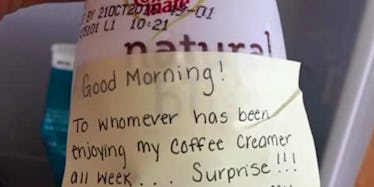 BY 21OCT20
10:21
L1
mate
natural
Good Morning!
To whomever has been
enjoying my coffee creamer
all week... Surprise!!!